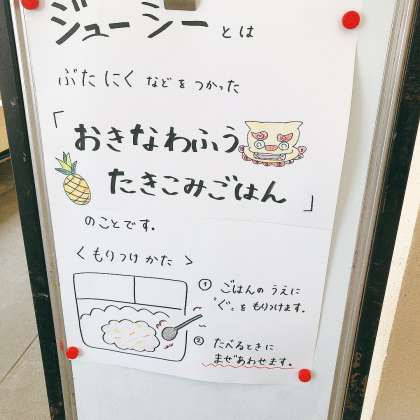 ジューシーとは
ぶたにくなどをつかった
「おきなわふう
たきこみごはん」
のことです。
〈もりつけかた〉
① ごはんのうえに
「ぐ」をもりつけます。
② たべるときに
まぜあわせます。